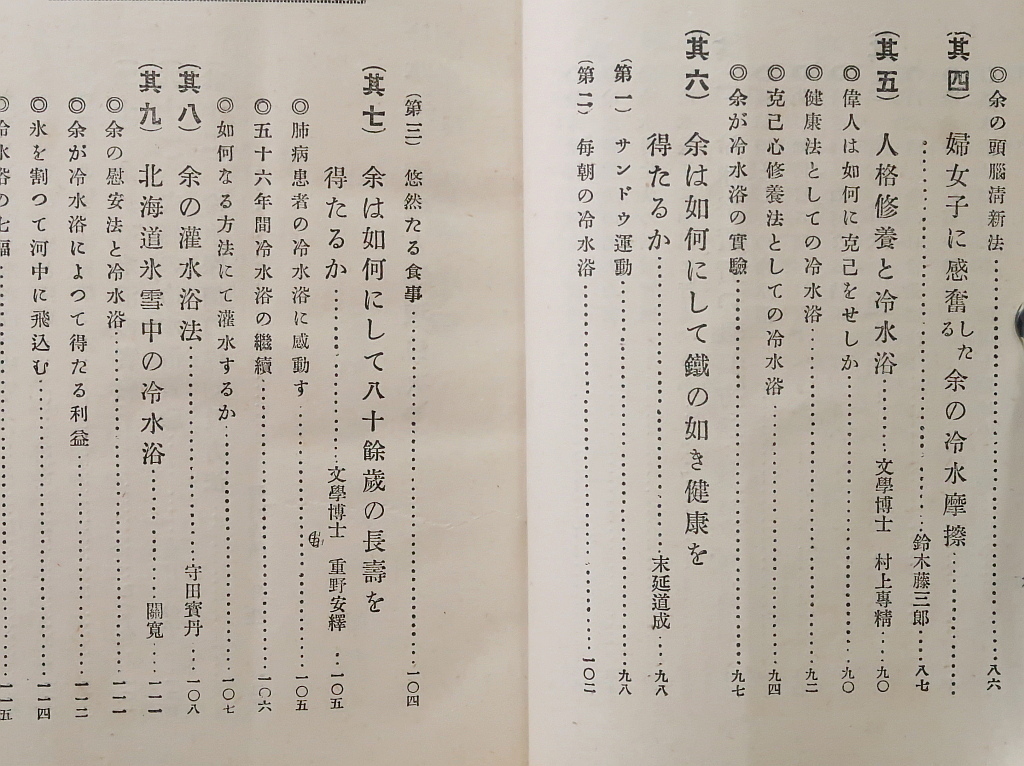 ◎余の頭腦清新法……八六
(其四) 婦女子に感奮したる余の冷水摩擦……
……鈴木藤三郎……八七
(其五) 人格修養と冷水浴……文學博士 村上專精……九〇
◎偉人は如何に克己をせしか……九〇
◎健康法としての冷水浴……九二
◎克己心修養法としての冷水浴……九四
◎余が冷水浴の實驗……九七
(其六) 余は如何にして鐵の如き健康を
得たるか……末延道成……九八
(第一) サンドウ運動……九八
(第二) 每朝の冷水浴……一〇二
(第三) 悠然たる食事……一〇四
(其七) 余は如何にして八十餘歲の長壽を
得たるか……文學博士 重野安繹……一〇五
◎肺病患者の冷水浴に感動す……一〇五
◎五十六年間冷水浴の繼續……一〇六
◎如何なる方法にて灌水するか……一〇七
(其八) 余の灌水浴法……守田寳丹……一〇八
(其九) 北海道氷雪中の冷水浴……關寬……一一一
◎余の慰安法と冷水浴……一一一
◎余が冷水浴によつて得たる利益……一一二
◎氷を割つて河中に飛込む……一一四
◎冷水浴の七福……一一五